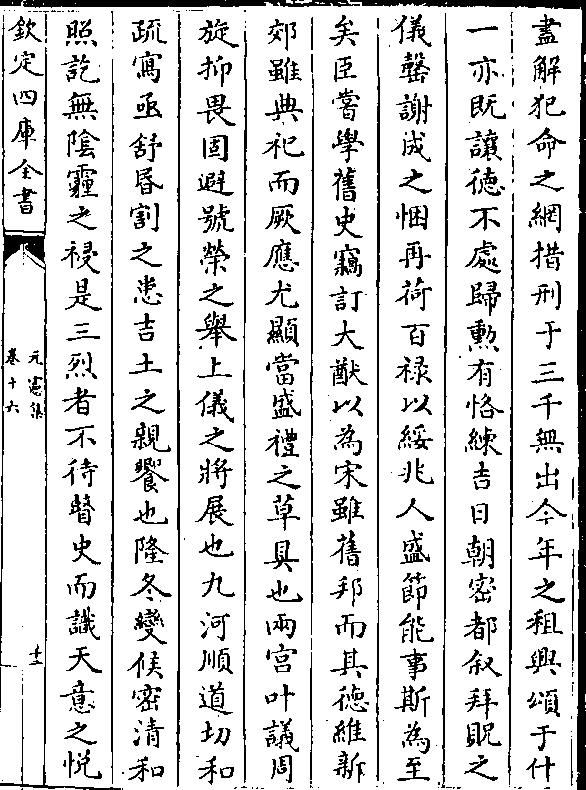 盡解犯命之網措刑于三千無出今年之租興頌于什
一亦既讓德不處歸勲有恪練吉日朝密都叙拜貺之
儀罄謝成之悃再荷百禄以綏兆人盛節能事斯為至
矣臣嘗學舊史竊訂大猷以為宋雖舊邦而其德維新
郊雖典祀而厥應尤顯當盛禮之草具也兩宫叶議周
旋抑畏固避號榮之舉上儀之將展也九河順道切和
疏寫亟舒昏割之患吉土之親饗也隆冬變候密清和
照訖無陰霾之祲是三烈者不待瞽史而識天意之悦
欽定四庫全書
元憲集
卷十六
十三